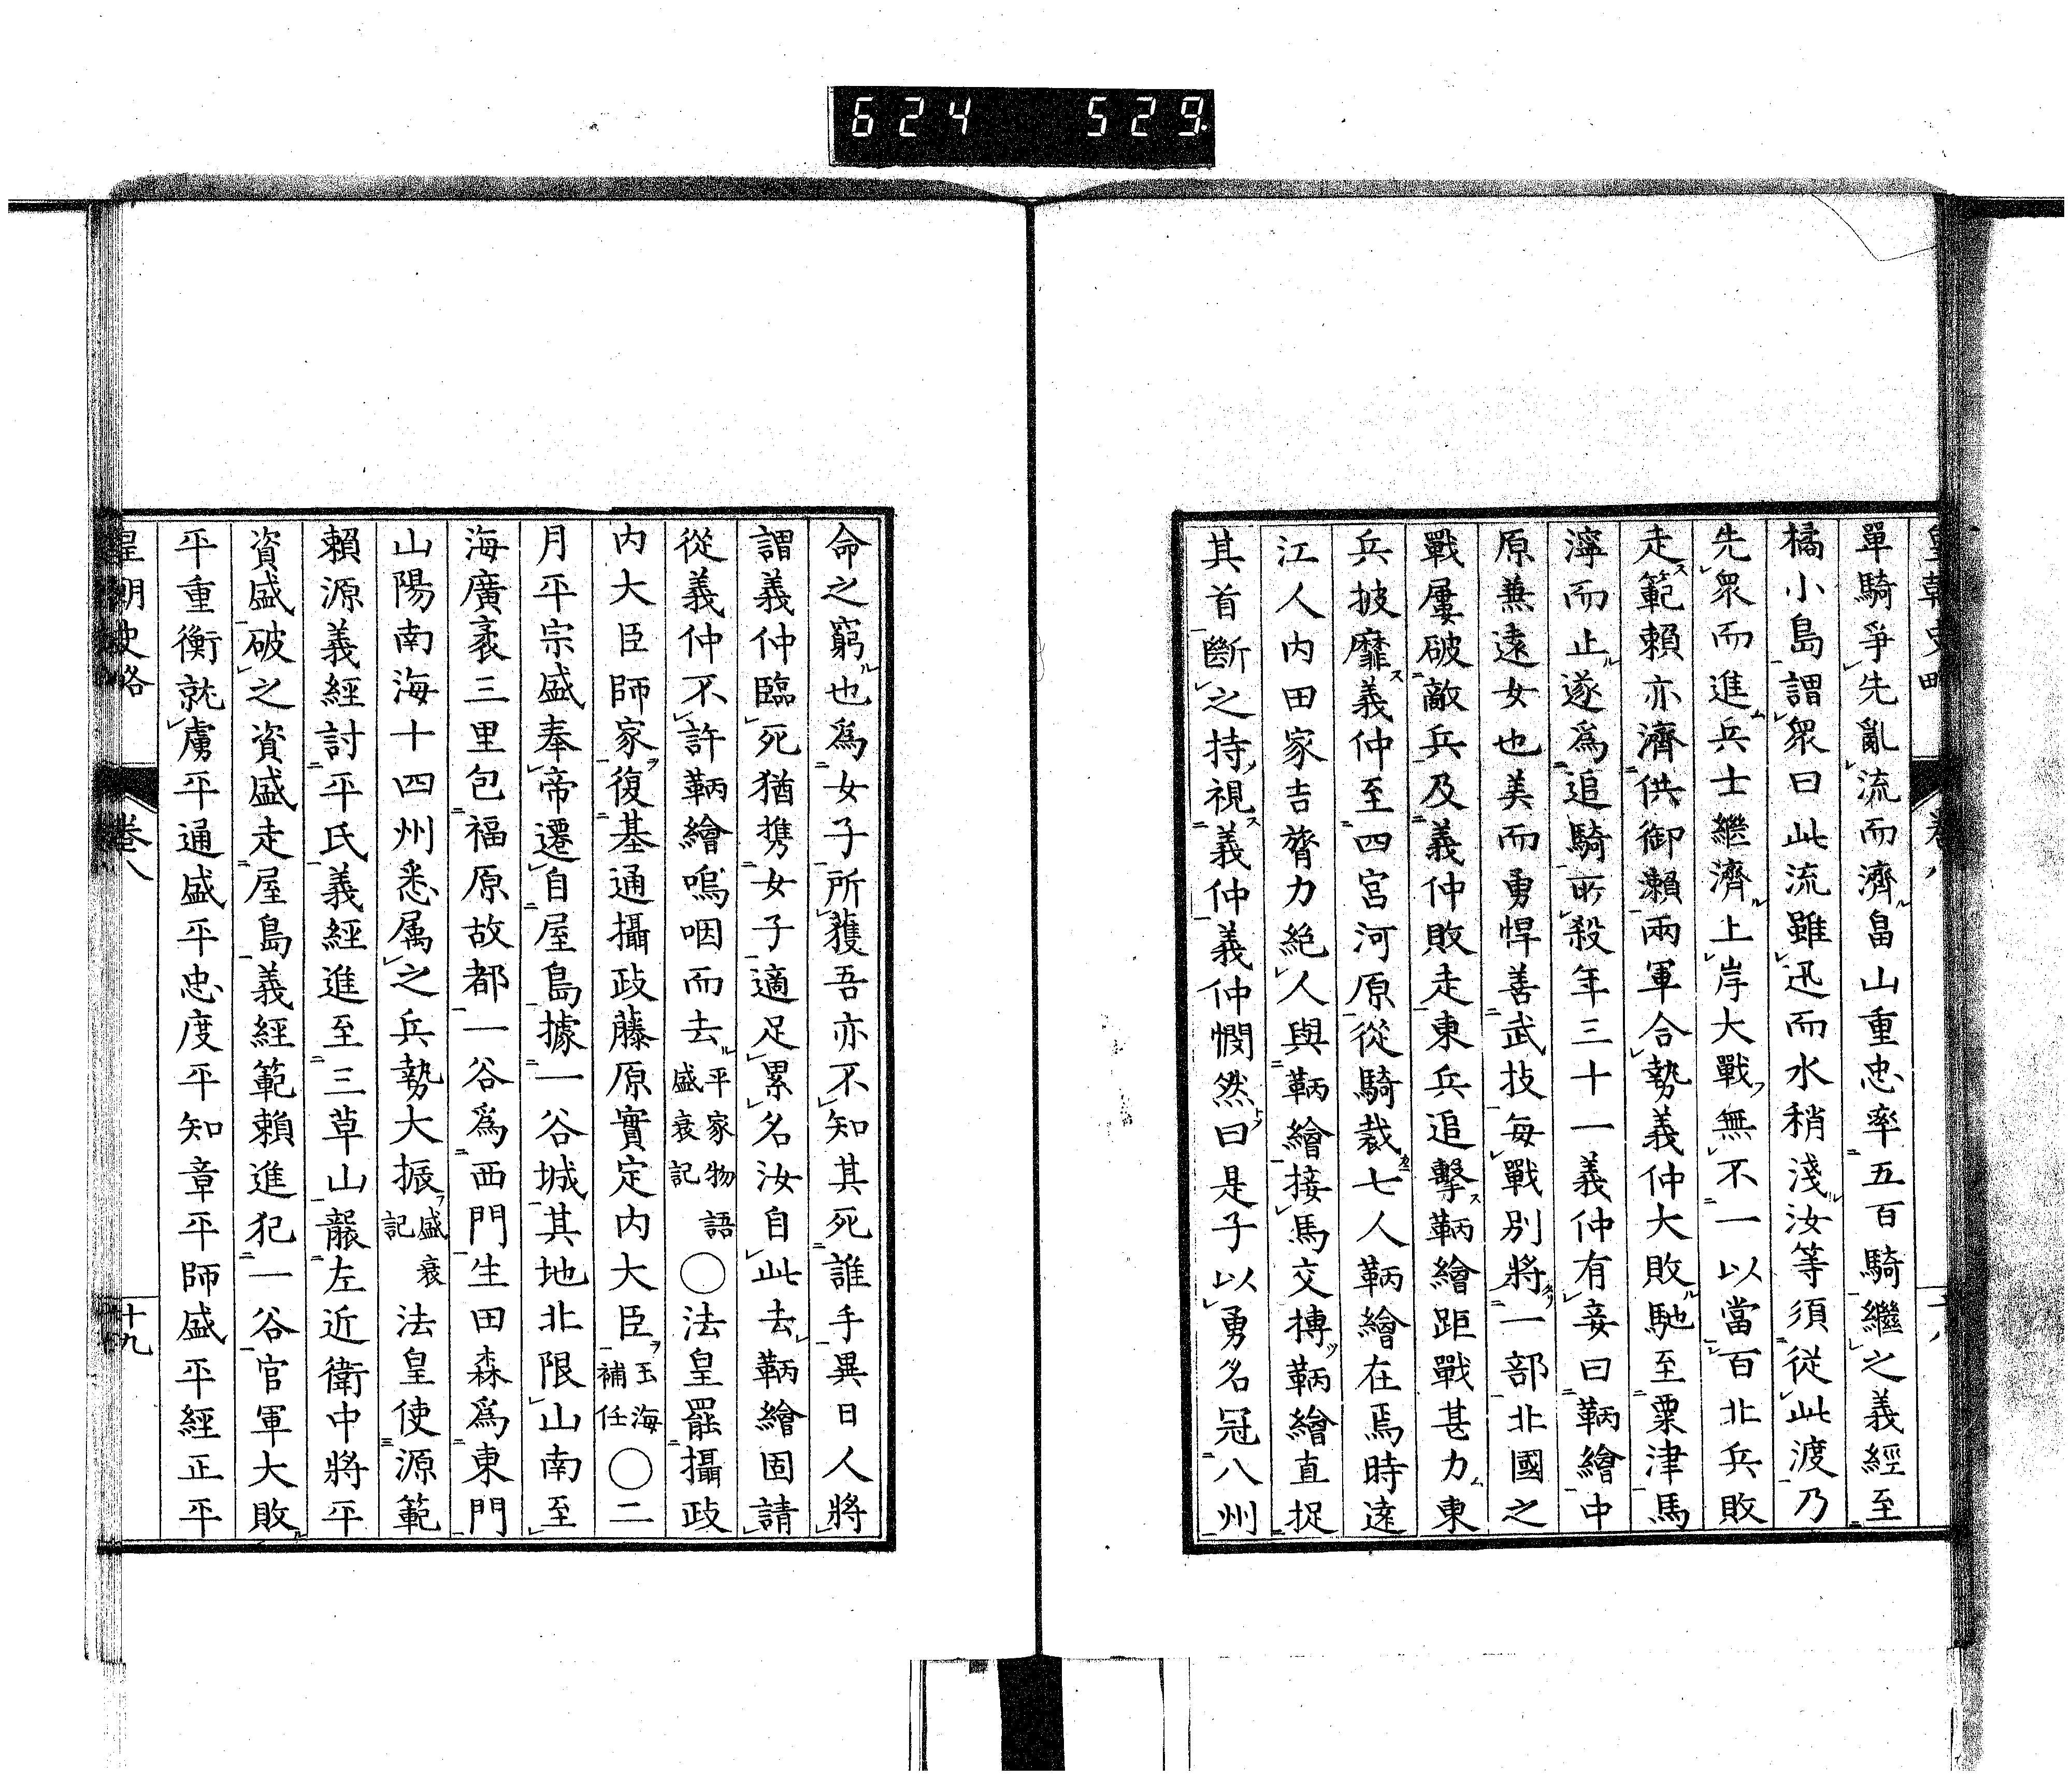 624 529
單騎爭先亂流而濟畠山重忠率五百騎繼之義經至
橘小島謂衆曰此流雖迅而水稍淺汝等須從此渡乃
先衆而進兵士繼濟上岸大戰無不一以當百北兵敗
走範賴亦濟供御瀨兩軍合勢義仲大敗馳至粟津馬
濘而止遂爲追騎所殺年三十一義仲有妾曰鞆繪中
原兼遠女也美而勇悍善武技每戰別將一部北國之
戰屢破敵兵及義仲敗走東兵追擊鞆繪距戰甚力東
兵披靡義仲至四宮河原從騎裁七人鞆繪在焉時遠
江人內田家吉膂力絕人與鞆繪接馬交搏鞆繪直捉
其首斷之持視義仲義仲憫然曰是子以勇名冠八州
命之窮也爲女子所獲吾亦不知其死誰手異日人將
謂義仲臨死猶携女子適足累名汝自此去鞆繪固請
從義仲不許鞆繪嗚咽而去平家物語盛衰記○法皇罷攝政
內大臣師家復基通攝政藤原實定內大臣玉海補任○二
月平宗盛奉帝遷自屋島據一谷城其地北限山南至
海廣袤三里包福原故都一谷爲西門生田森爲東門
山陽南海十四州悉属之兵勢大振盛衰記法皇使源範
賴源義經討平氏義經進至三草山襲左近衛中將平
資盛破之資盛走屋島義經範賴進犯一谷官軍大敗
平重衡就虜平通盛平忠度平知章平師盛平經正平
皇朝史略 卷八 十九